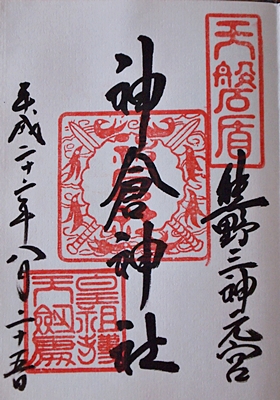 天磐盾
熊野三神元宮
神倉神社
平成二十二年八月二十五日